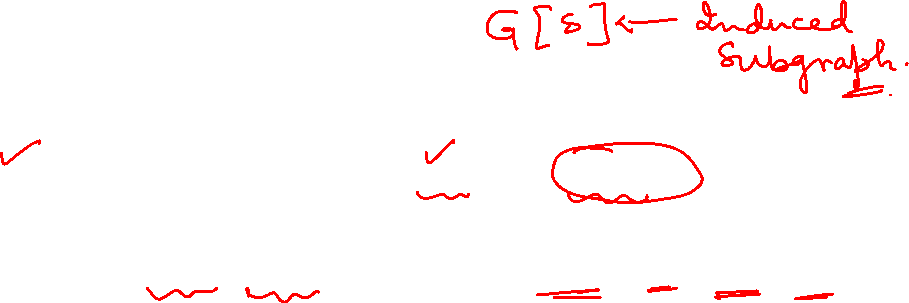 G[S] ← Induced
Subgraph.